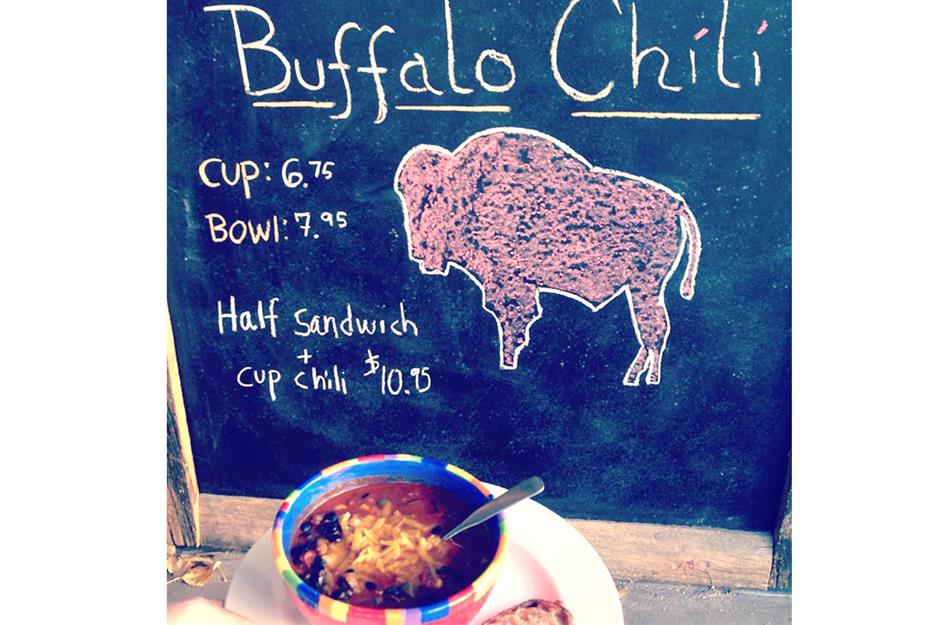 Buffalo Chili
CUP: 6.75
BOWl: 7.95
Half Sandwich
+
CUP chili $10.95